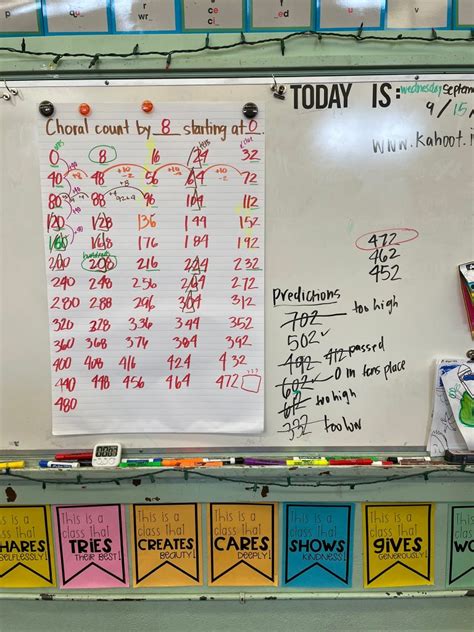 TODAY IS: wednesday
9/15
www.kahoot.
Choral count by 8 starting at 0
0 8 16 24 32
40 48 56 64 72
80 88 96 104 112
120 128 136 144 152
160 168 176 184 192
200 208 216 224 232
240 248 256 264 272
280 288 296 304 312
320 328 336 344 352
360 368 376 384 392
400 408 416 424 432
440 448 456 464 472
480
472
462
452
Predictions
702 too high
502 ✓
492 passed
602 0 in tens place
too high
332 too low
SHARES SELFLESSLY!
This is a class that TRIES THEIR BEST!
This is a class that CREATES BEAUTY!
This is a class that CARES DEEPLY!
This is a class that SHOWS KINDNESS!
This is a class that GIVES GENEROUSLY!